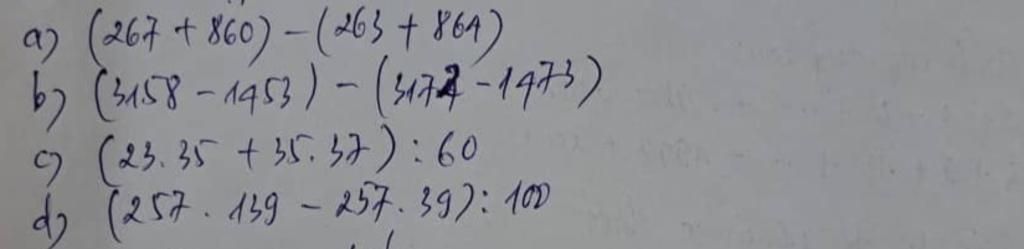 a) (267 + 860) - (263 + 864)
b) (3158 - 1453) - (3172 - 1473)
c) (23.35 + 35.37) : 60
d) (257 . 139 - 257 . 39) : 100